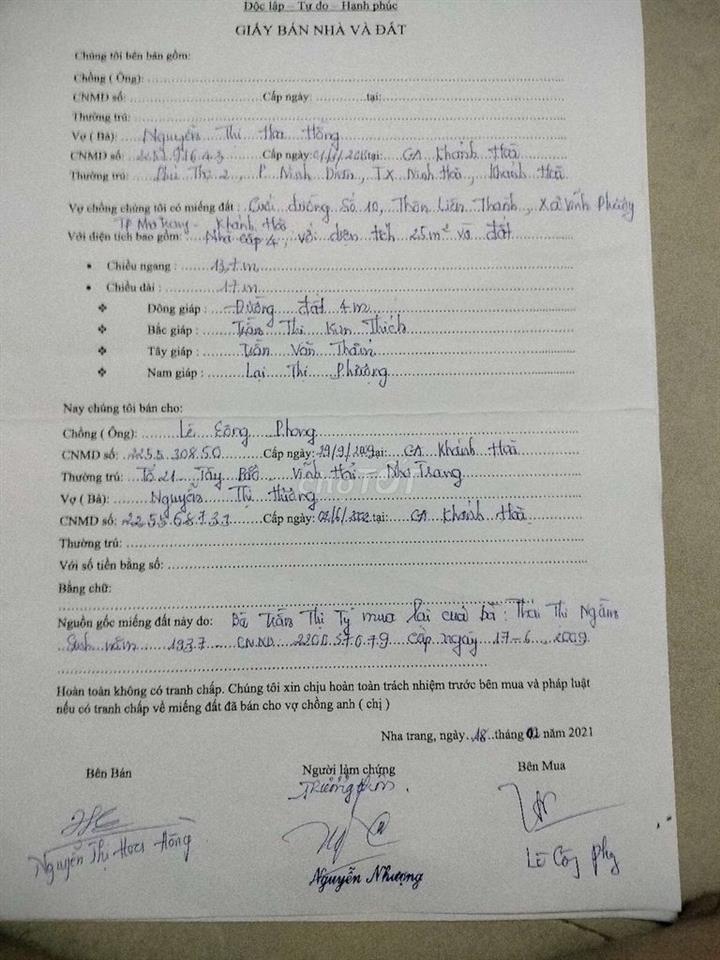 Độc lập – Tự do – Hạnh phúc
GIẤY BÁN NHÀ VÀ ĐẤT
Chúng tôi bên bán gồm:
Chồng ( Ông):
CNMD số: Cấp ngày: tại:
Thường trú:
Vợ ( Bà): Nguyễn Thị Hoa Hồng
CNMD số: Cấp ngày: tại: CA Khánh Hoà
Thường trú: Phú Thọ 2, P. Ninh Diêm, TX Ninh Hoà, Khánh Hoà
Vợ chồng chúng tôi có miếng đất : Cuối đường Số 10, Thôn Liên Thành, Xã Vĩnh Phương
TP Nha Trang - Khánh Hoà
Với diện tích bao gồm: Nhà cấp 4, với diện tích 25m² và đất
• Chiều ngang : 13,7m
• Chiều dài : 17m
❖ Đông giáp : Đường đất 4m
❖ Bắc giáp : Trần Thị Kim Thích
❖ Tây giáp : Trần Văn
❖ Nam giáp : Lại Thị Phượng
Nay chúng tôi bán cho:
Chồng ( Ông): Lê Công Phong
CNMD số: 225530850 Cấp ngày: 29/9/2009 tại: CA Khánh Hoà
Thường trú: Tổ 21 Tây Bắc Vĩnh Hải Nha Trang
Vợ ( Bà): Nguyễn Thị Hường
CNMD số: 225568737 Cấp ngày: tại: CA Khánh Hoà
Thường trú:
Với số tiền bằng số:
Bằng chữ:
Nguồn gốc miếng đất này do: Bà Trần Thị Tý mua lại của bà: Thái Thị Ngâm
Sinh năm 1937 CMND 220057679 cấp ngày 17-6 2009
Hoàn toàn không có tranh chấp. Chúng tôi xin chịu hoàn toàn trách nhiệm trước bên mua và pháp luật
nếu có tranh chấp về miếng đất đã bán cho vợ chồng anh ( chị )
Nha trang, ngày 18 tháng 02 năm 2021
Bên Bán Người làm chứng Bên Mua
Trưởng thôn.
Nguyễn Thị Hoa Hồng Nguyễn Nhượng Lê Công
CHỢ TỐT